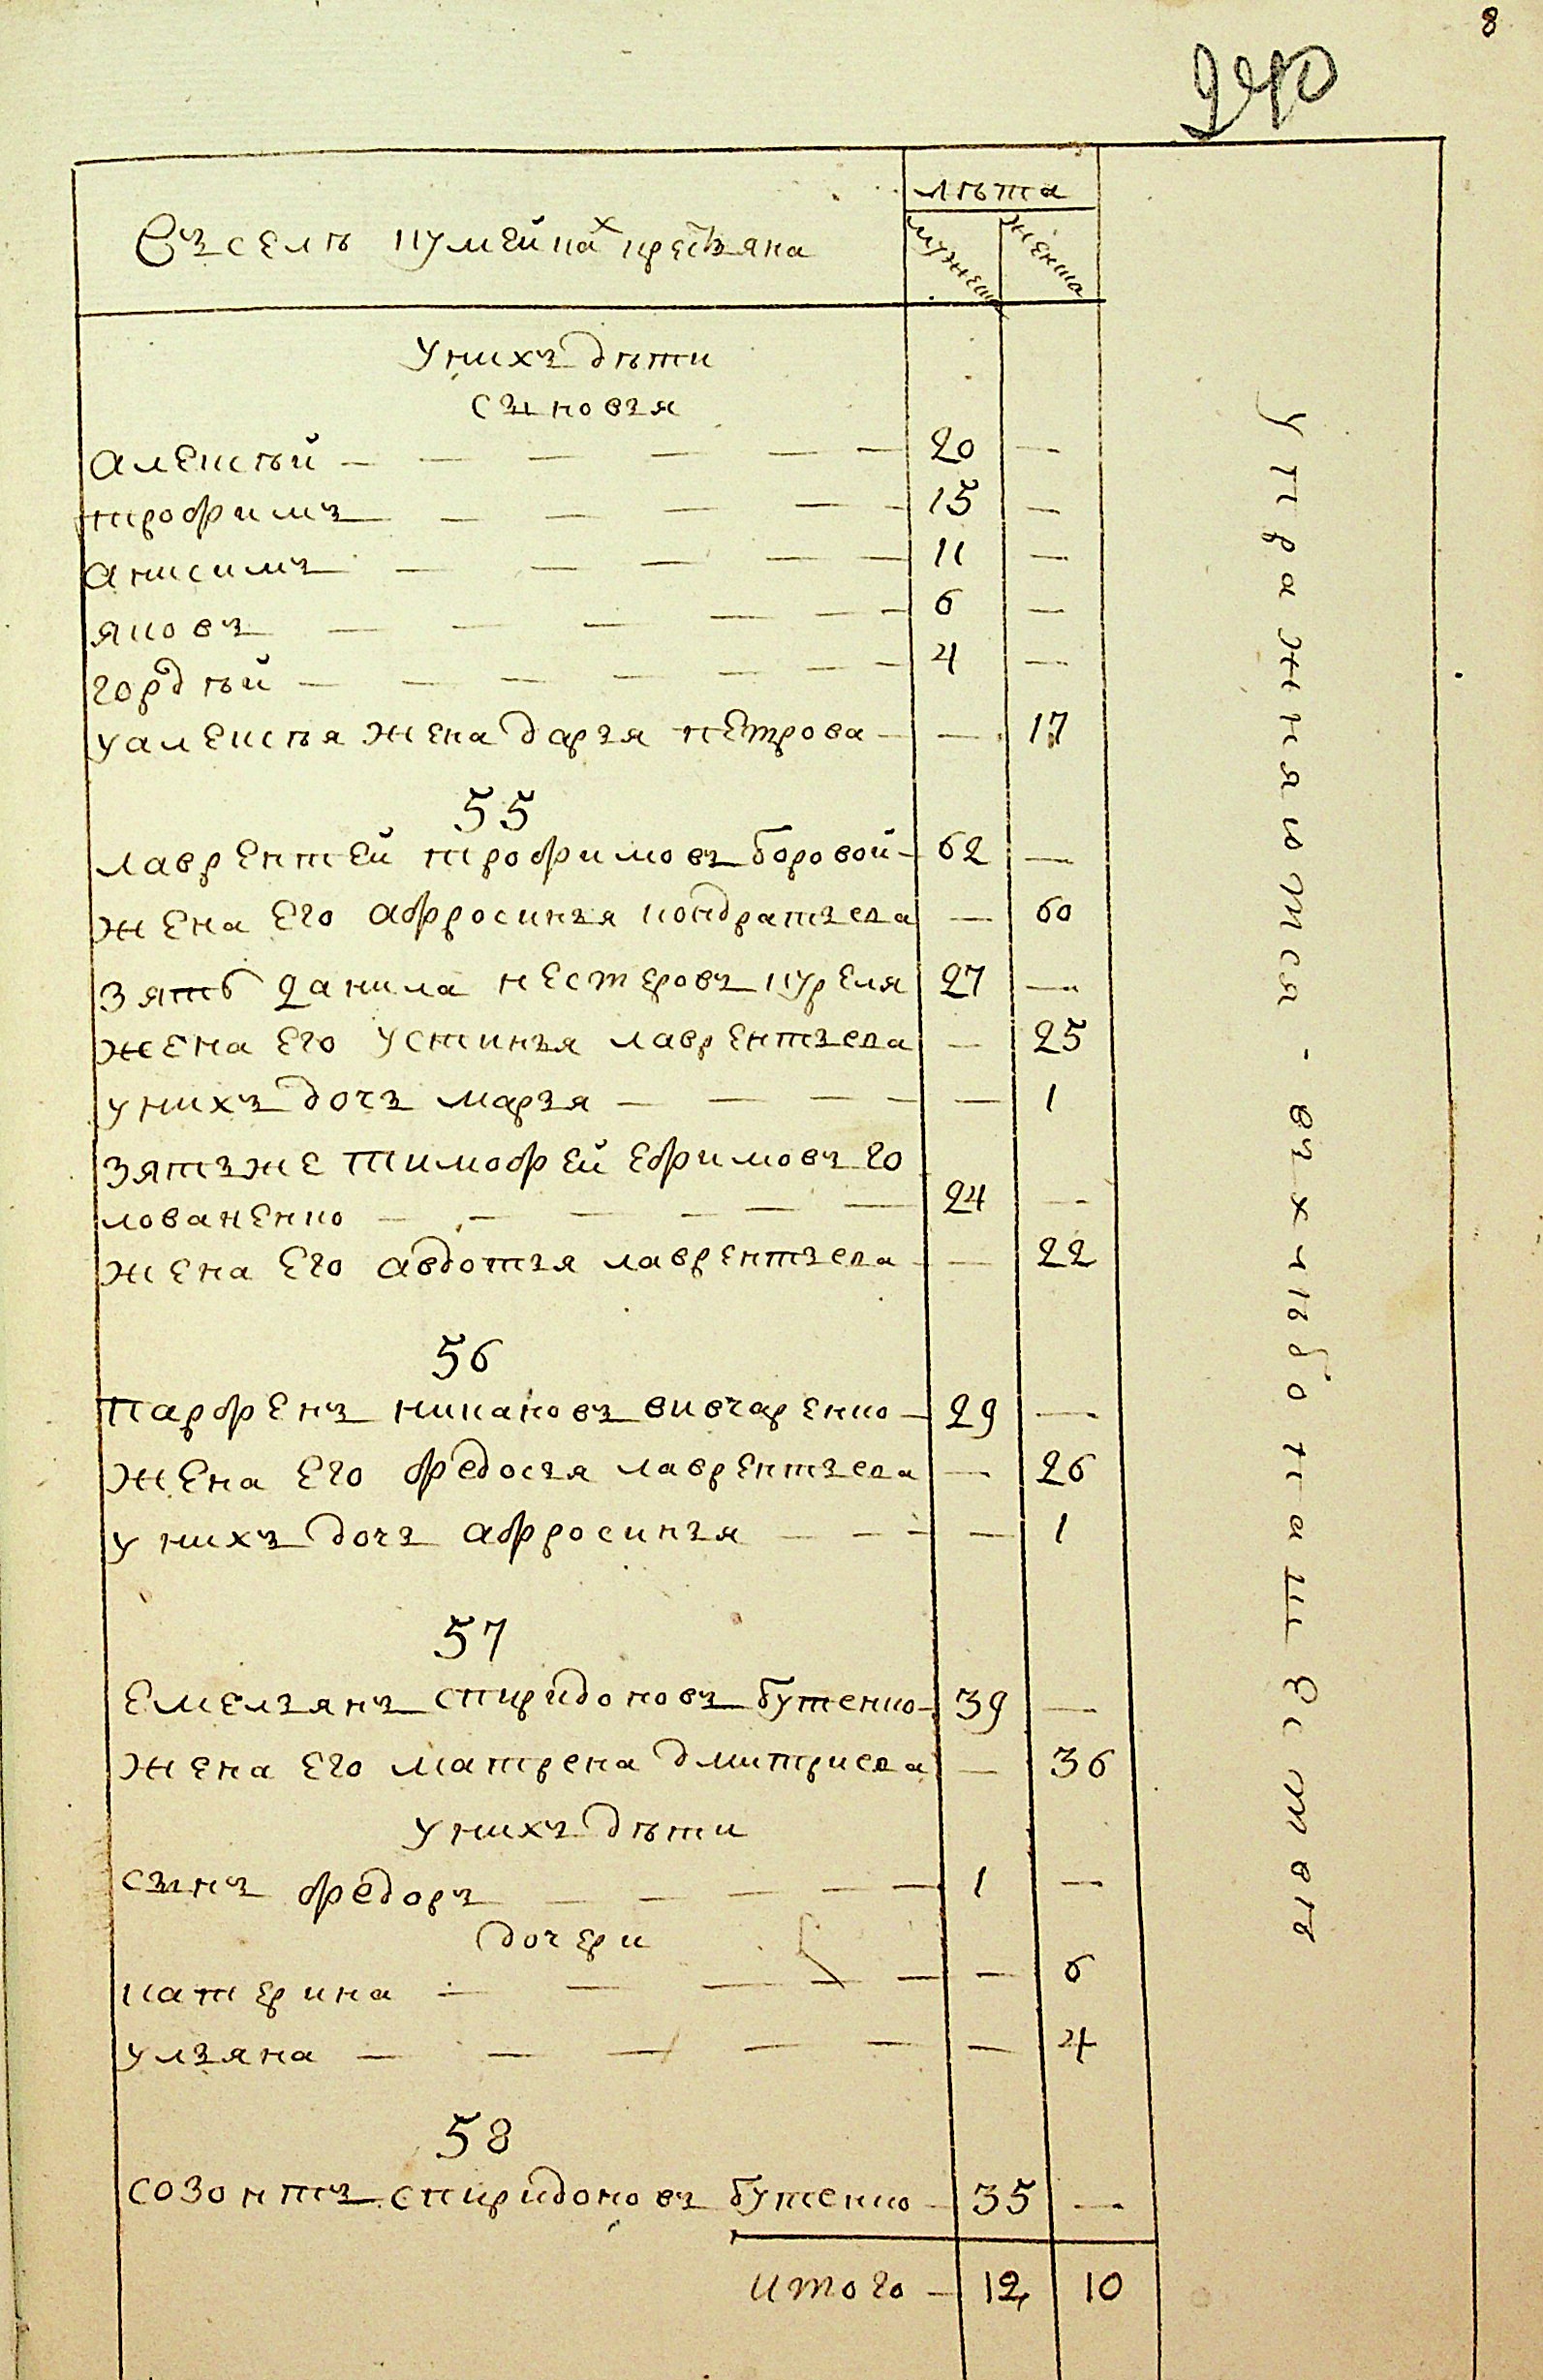 8
240
лѣта
Въ селѣ кумейках крестьяна
мужеска
женска
У нихъ дѣти
сыновья
Алексѣй — 20 —
трофимъ — 15 —
Анисимъ — 11 —
яковъ — 6 —
гордѣй — 4 —
у алексѣя жена дарья петрова — — 17
55
лаврентей трофимовъ боровой — 62 —
жена Его афросинья кондратьева — 60
зять данила нестеровъ куреля 27 —
жена Его устинья лаврентьева — 25
у нихъ дочь марья — — 1
зятьже тимофей ефимовъ го
лованенко — 24 —
жена Его авдотья лаврентьева — 22
56
парфенъ никановъ вивчаренко — 29 —
жена Его федосья лаврентьева — 26
у нихъ дочь афросинья — — 1
57
Емельянъ спиридоновъ бутенко — 39 —
жена Его матрена дмитриева — 36
у нихъ дѣти
сынъ федоръ — 1 —
дочери
катерина — — 6
ульяна — — 4
58
созонтъ спиридоновъ бутенко — 35 —
итого — 12 10
упражняются въ хлѣбопашествѣ